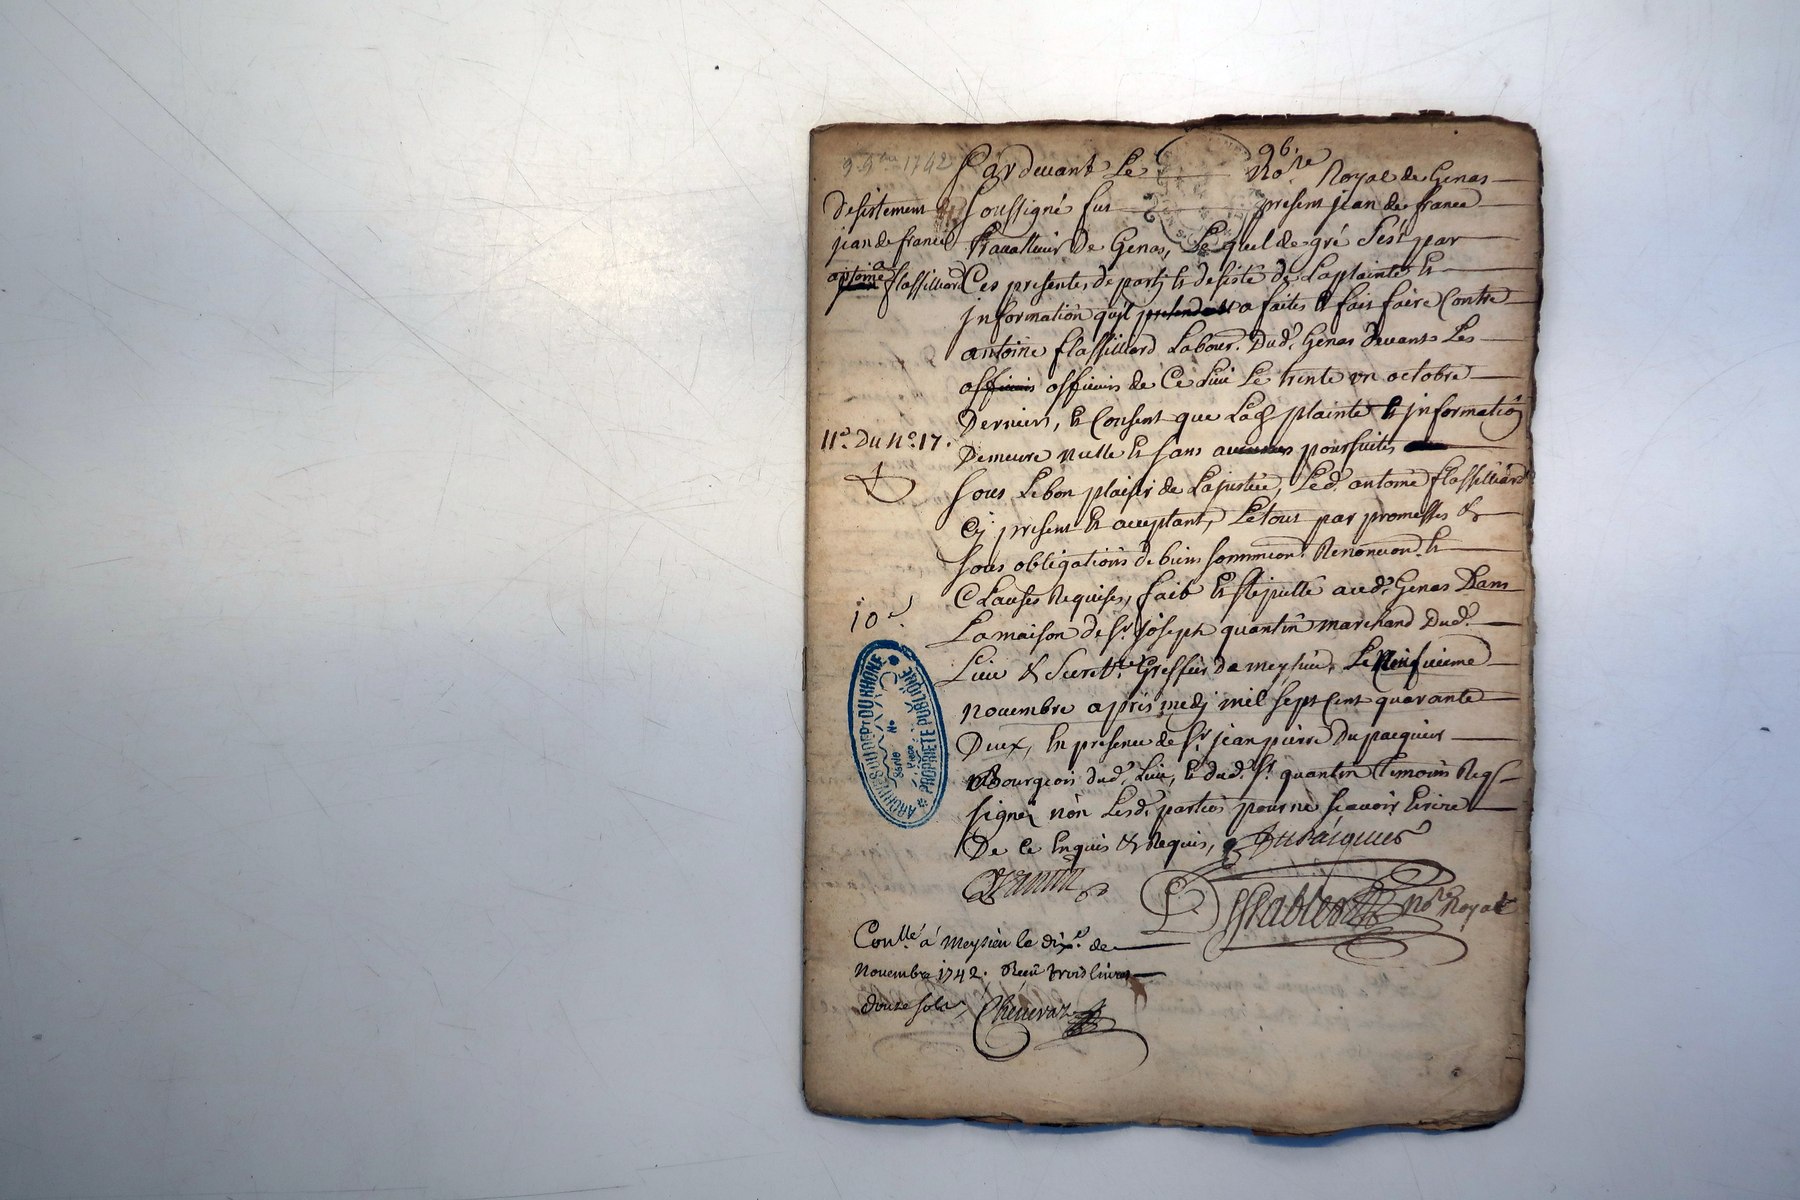 96.
9 9bre 1742
Pardevant Le No.re Royal de Genas
soussigné fut present jean de france
travailleur de Genas, Lequel de gré s'est par
Ces presentes departy et desisté de La plainte et
jnformation quil a faites et fait faire Contre
antoine flassilliard Labour.r dud.t Genas devant Les
officiers officiers de Ce Lieu Le trente un octobre
Derniers, et Consent que Lad.e plainte et jnformation
Demeure nulle et sans aucunes poursuites
sous Le bon plaisir de La justice, Led.t antoine flassilliard
Cy present et acceptant, Le tout par promesses &
sous obligations de biens soummion.s Renoncion.s et
Clauses Requises, fait et stipullé aud.t Genas Dans
La maison de S.r joseph quantin marchand Dud.t
Lieu & Secret.re Greffier de meysieu, Le Neufvieme
novembre après medj mil sept Cent quarante
Deux, En presence de S.r jean pierre Dupacquier
Bourgeois dud.t Lieu, et dud.t S.r quantin Temoins Reqs
signez non Lesd.t parties pour ne sçavoir Ecrire
De ce Enquis & Requis, Dupacquier
Quantin
No.re Royal
Desistement
jean de france
a
antoine flassilliard
11.e Du N.o 17.
10 s.
ARCHIVES DU DEPT DU RHÔNE
Série No
Pièce
PROPRIÉTÉ PUBLIQUE
Con.llé à Meysieu le dix.e de
Novembre 1742. Reçu trois livres
douze sols, Chenevaz